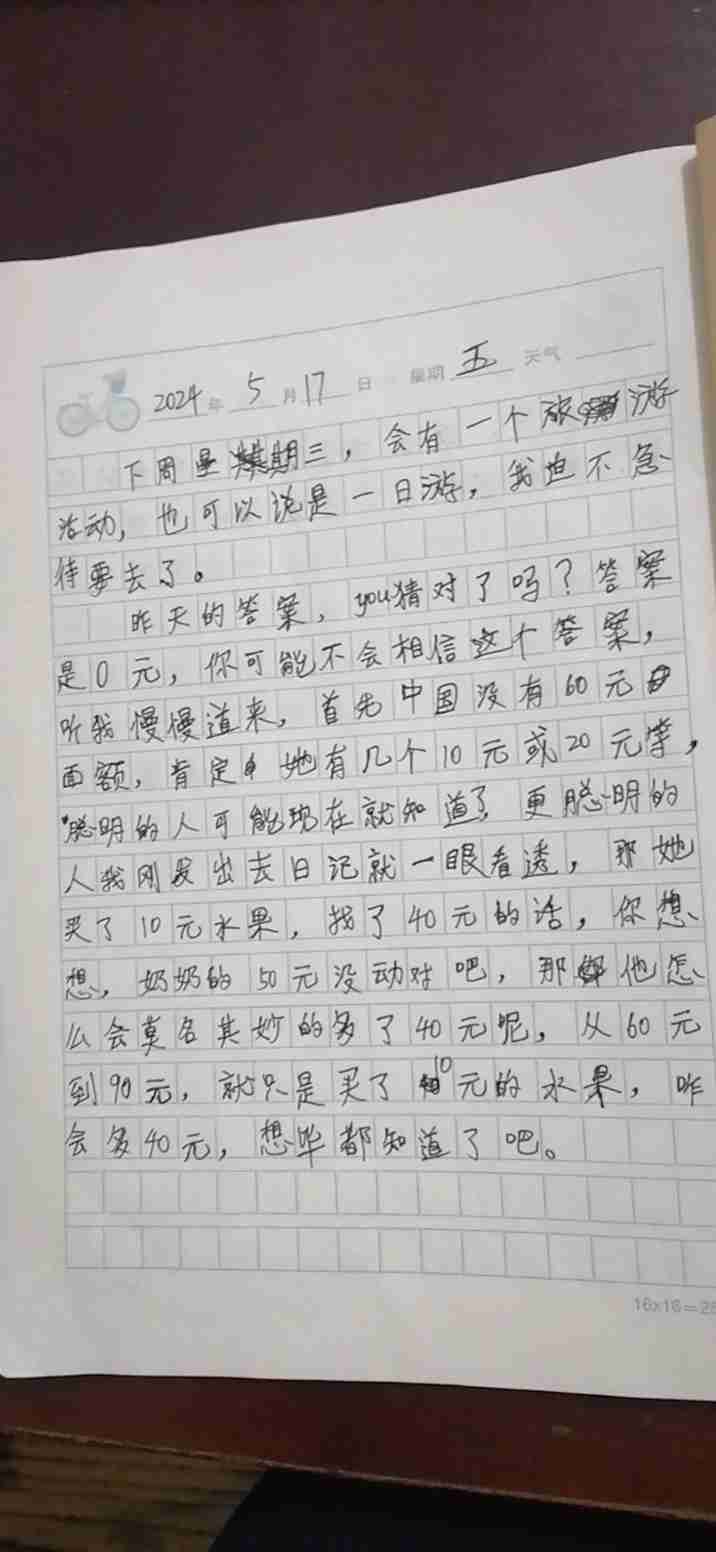 2024年 5月17日 星期五 天气
下周星期三，会有一个旅游
活动，也可以说是一日游，我迫不急
待要去了。
昨天的答案，you猜对了吗？答案
是0元，你可能不会相信这个答案，
听我慢慢道来，首先中国没有60元
面额，肯定她有几个10元或20元等，
聪明的人可能现在就知道了，更聪明的
人我刚发出去日记就一眼看透，那她
买了10元水果，找了40元的话，你想
想，奶奶的50元没动对吧，那他怎
么会莫名其妙的多了40元呢，从60元
到90元，就只是买了10元的水果，咋
会多40元，想毕都知道了吧。